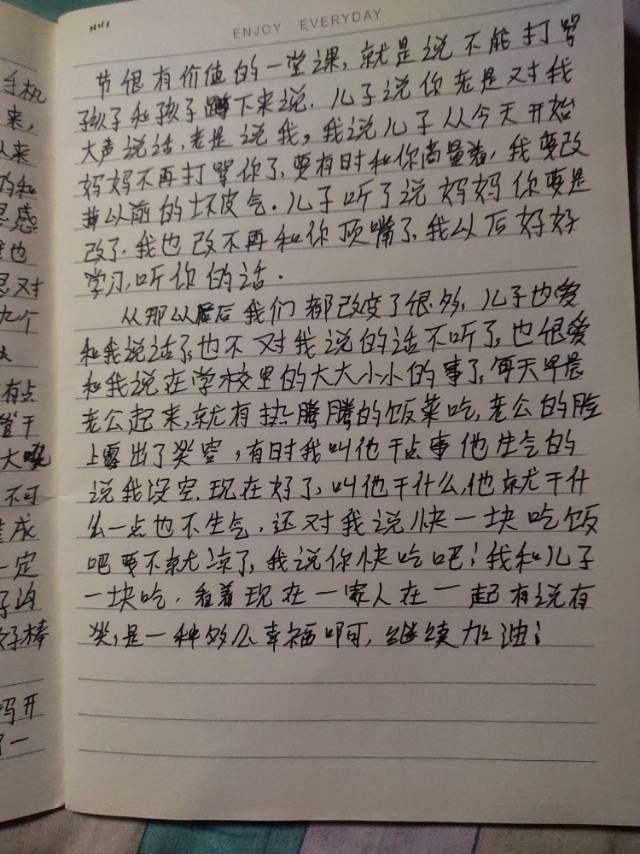 ENJOY EVERYDAY
节很有价值的一堂课,就是说不能打骂
孩子和孩子蹲下来说.儿子说你老是对我
大声说话,老是说我,我说儿子从今天开始
妈妈不再打骂你了,要有时和你商量着,我要改
掉以前的坏皮气.儿子听了说妈妈你要是
改了.我也改不再和你顶嘴了.我以后好好
学习,听你的话.
从那以后我们都改变了很多,儿子也爱
和我说话了,也不对我说的话不听了,也很爱
和我说在学校里的大大小小的事了,每天早晨
老公起来,就有热腾腾的饭菜吃,老公的脸
上露出了笑容,有时我叫他干点事他生气的
说我没空.现在好了,叫他干什么,他就干什
么一点也不生气,还对我说快一块吃饭
吧要不就凉了,我说你快吃吧!我和儿子
一块吃.看着现在一家人在一起有说有
笑,是一种多么幸福啊,继续加油!
手机
来,
从来
的和
思感
也
思对
九个
有点
管干
大喊
不可
造成
一定
子沟
孩子棒
妈开
了一